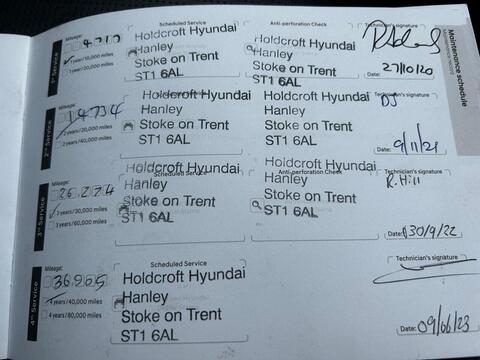 Scheduled Service
Anti-perforation Check
Technician's signature
Maintenance schedule
Maintenance record
1st Service
Mileage:
1 years/10,000 miles
Holdcroft Hyundai
Hanley
Stoke on Trent
ST1 6AL
Holdcroft Hyundai
Hanley
Stoke on Trent
ST1 6AL
Date: 27/10/20
2nd Service
Mileage:
14734
2 years/20,000 miles
Holdcroft Hyundai
Hanley
Stoke on Trent
ST1 6AL
Holdcroft Hyundai
Hanley
Stoke on Trent
ST1 6AL
Technician's signature
DJ
Date: 9/11/21
3rd Service
Mileage:
26274
3 years/30,000 miles
3 years/60,000 miles
Holdcroft Hyundai
Scheduled Service
Hanley
Stoke on Trent
ST1 6AL
Holdcroft Hyundai
Anti-perforation Check
Hanley
Stoke on Trent
ST1 6AL
Technician's signature
R. Hill
Date: 30/9/22
4th Service
Mileage:
36905
4 years/40,000 miles
4 years/80,000 miles
Scheduled Service
Holdcroft Hyundai
Hanley
Stoke on Trent
ST1 6AL
Technician's signature
Date: 09/06/23